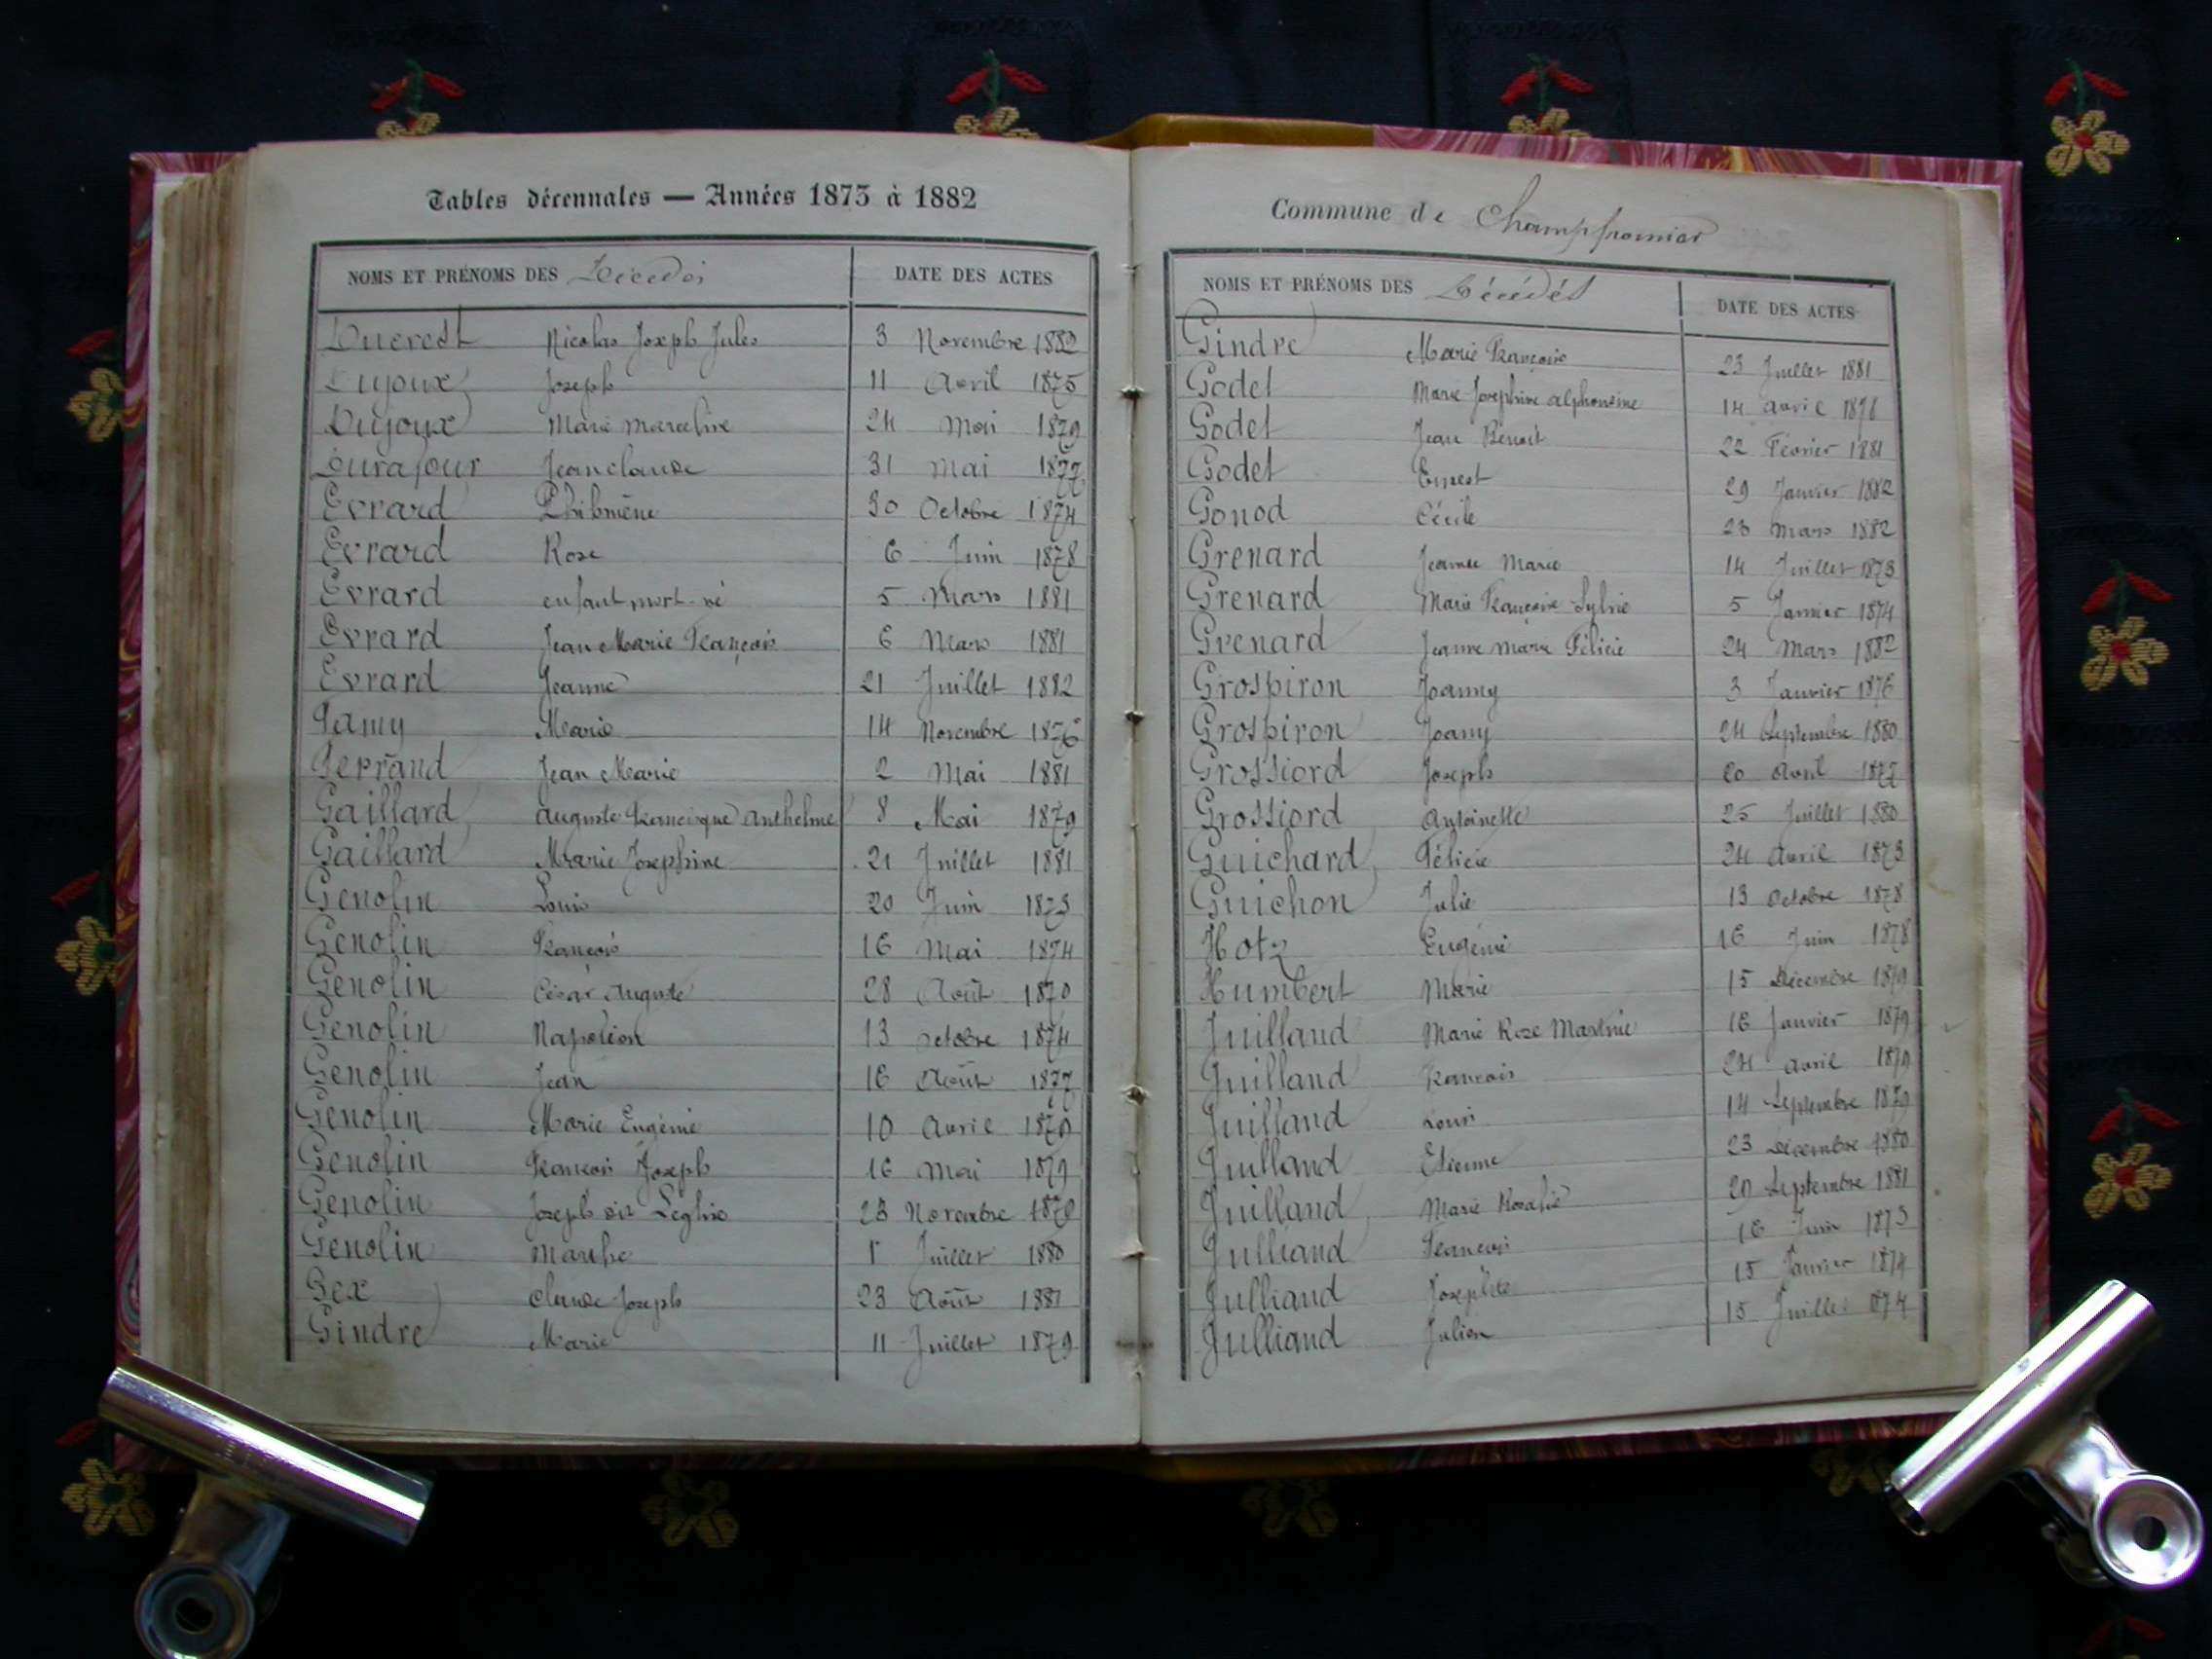 Tables décennales — Années 1873 à 1882
NOMS ET PRÉNOMS DES Décédés DATE DES ACTES
Ducrest Nicolas Joseph Jules 3 Novembre 1882
Dujoux Joseph 11 Avril 1875
Dujoux Marie Marceline 24 Mai 1879
Durafour Jean Claude 31 Mai 1877
Evrard Philomène 30 Octobre 1874
Evrard Rose 6 Juin 1878
Evrard enfant mort-né 5 Mars 1881
Evrard Jean Marie François 6 Mars 1881
Evrard Jeanne 21 Juillet 1882
Famy Marie 14 Novembre 1876
Ferrand Jean Marie 2 Mai 1881
Gaillard Auguste Francisque Anthelme 8 Mai 1879
Gaillard Marie Josephine 21 Juillet 1881
Genolin Louis 20 Juin 1873
Genolin François 16 Mai 1874
Genolin César Auguste 28 Août
Genolin Napoléon 13 Octobre 1874
Genolin Jean 16 Août 1877
Genolin Marie Eugénie 10 Avril 1879
Genolin François Joseph 16 Mai 1879
Genolin Joseph dit 23 Novembre
Genolin Marthe 1r Juillet 1880
Gex Claude Joseph 23 Août 1881
Gindre Marie 11 Juillet 1879
Commune de Champfromier
NOMS ET PRÉNOMS DES Décédés DATE DES ACTES
Gindre Marie Françoise 23 Juillet 1881
Godet Marie Josephine Alphonsine 14 Avril
Godet Jean Benoit 22 Février 1881
Godet Ernest 29 Janvier 1882
Gonod Cécile 23 Mars 1882
Grenard Jeanne Marie 14 Juillet 1873
Grenard Marie Françoise Sylvie 5 Janvier 1874
Grenard Jeanne Marie Félicie 24 Mars 1882
Grospiron Joanny 3 Janvier 1876
Grospiron Joany 24 Septembre 1880
Grossiord Joseph 20 Avril 1877
Grossiord Antoinette 25 Juillet 1880
Guichard Félicie 24 Avril 1873
Guichon Julie 13 Octobre 1878
Hotz Eugénie 16 Juin 1878
Humbert Marie 15 Décembre 1879
Juilland Marie Rose Martine 16 Janvier 1879
Juilland François 24 Avril 1879
Juilland Louis 14 Septembre 1879
Juilland Etienne 23 Décembre 1880
Juilland Marie Rosalie 29 Septembre 1881
Julliand François 16 Juin 1873
Julliand Josephte 15 Janvier 1874
Julliand Julien 15 Juillet 1874